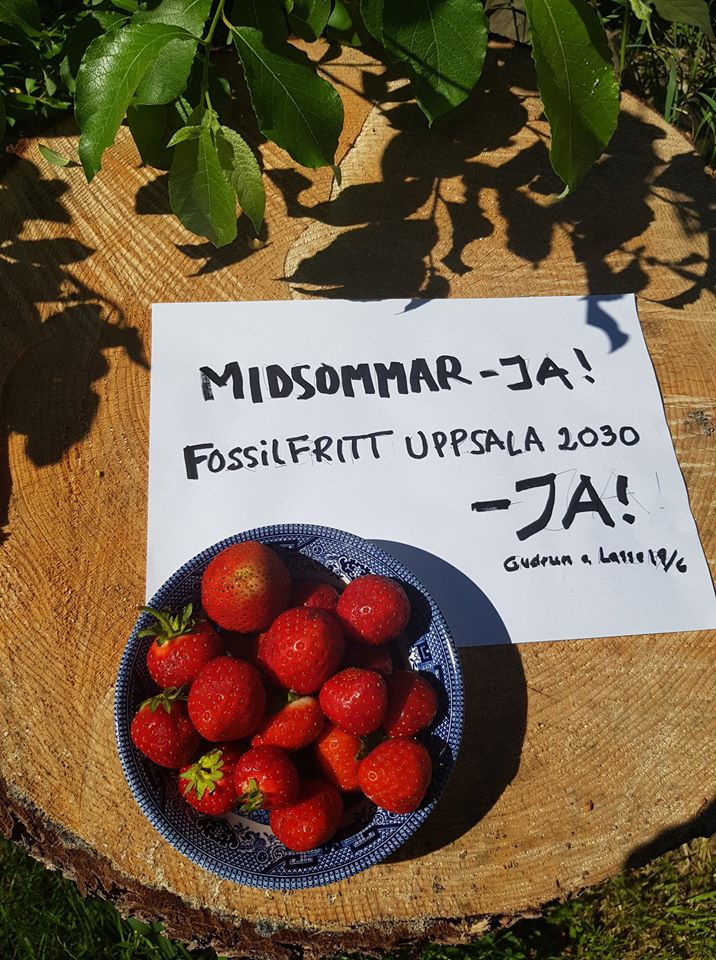 MIDSOMMAR - JA!
FOSSILFRITT UPPSALA 2030
- JA!
Gudrun & Lasse 19/6